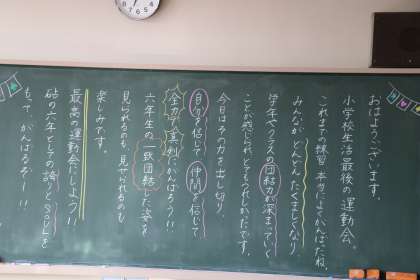 おはようございます。
小学校生活最後の運動会。
これまでの練習 本当によくがんばったね。
みんなが どんどん たくましくなり、
学年やクラスの団結力が深まっていく
ことが感じられ、とてもうれしかったです。
今日はその力を出し切り、
自分を信じて 仲間を信じて
全力で真剣にがんばろう!!
六年生の一致団結した姿を
見られるのも、見せられるのも
楽しみです。
最高の運動会にしよう!!
砧の六年としての誇りと"SOUL"を
もって、がんばるぞー!!